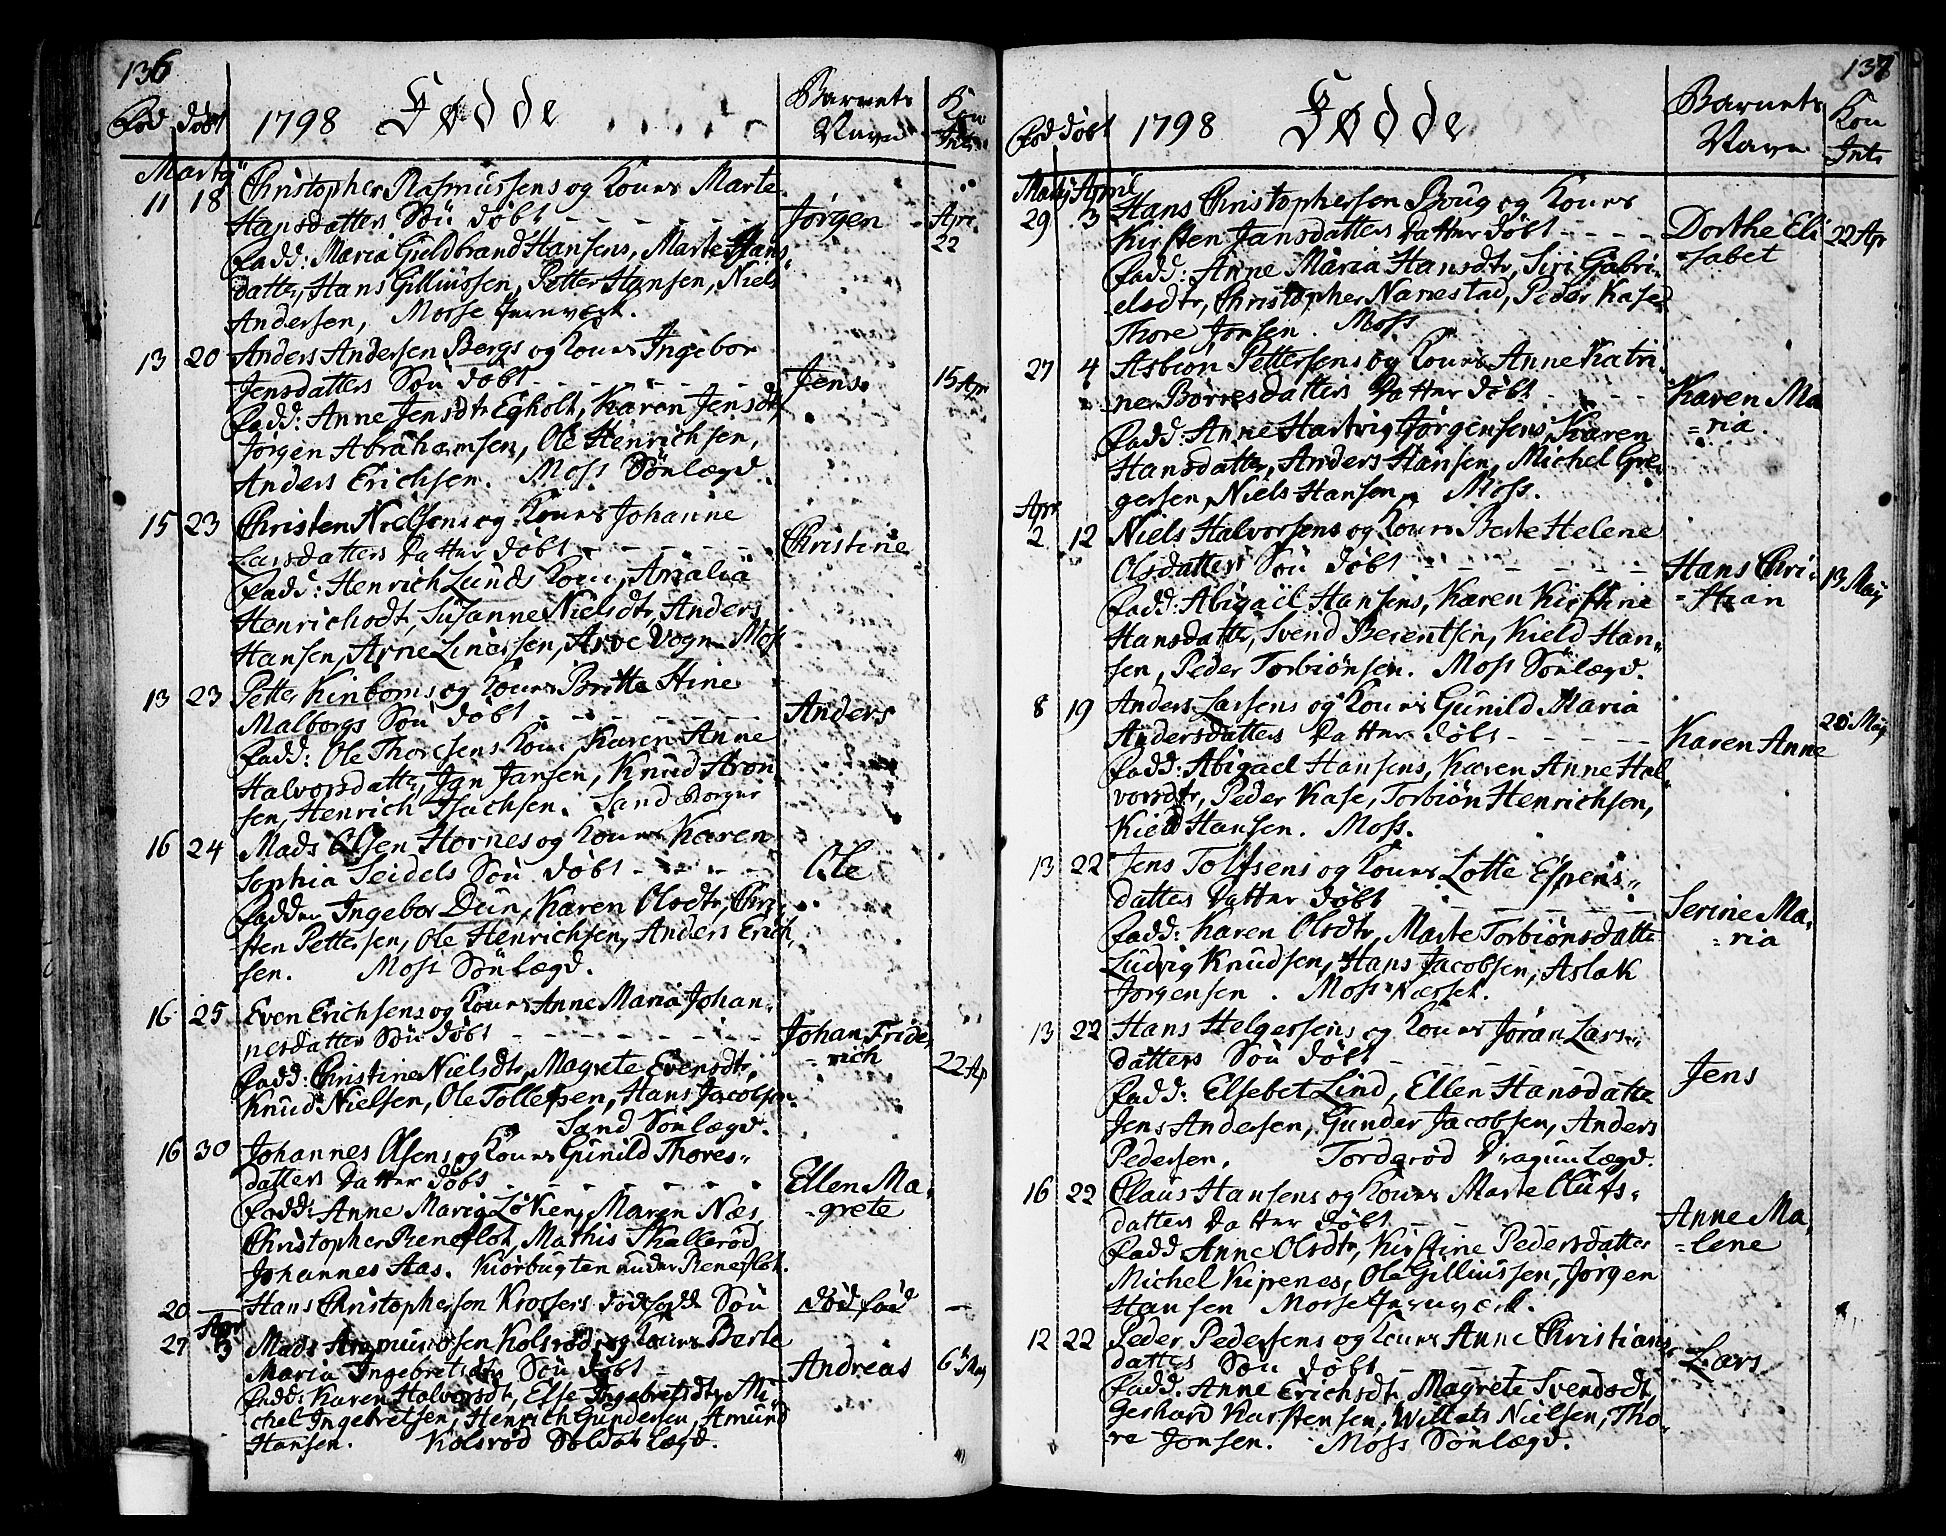 136
Fød døbt 1798 Fødde Barnets Navn Kon Int:
Martij
11 18 Christopher Rasmussens og Kones Marte
Hansdatters Søn døbt - - - - Jørgen Apr. 22
Fadd: Maria Guldbrand Hansens, Marte Hans-
datter, Hans Gilliussen, Petter Hansen, Niels
Andersen, Morse Jernværk.
13 20 Anders Andersen Bergs og Kones Ingebor
Jensdatters Søn døbt - - - - Jens. 15 Apr
Fadd: Anne Jensdtr Egholt, Karen Jensdtr
Jørgen Abrahamsen, Ole Henrichsen,
Anders Erichsen. Moss Sønlægd.
15 23 Christen Nielsens og Kones Johanne
Larsdatters Datter døbt - - - - Christine
Fadd: Henrich Lunds Kone, Amalia
Henrichsdt, Susanne Nielsdtr, Anders
Hansen, Arne Linassen, Arve Vogn Moss
13 23 Petter Kinboms og Kones Britte Stine
Malborgs Søn døbt - - - - Anders
Fadd: Ole Thoresens Kone, Karen Anne
Halvorsdatter, Jan Jansen, Knud Aron-
sen, Henrich Isachsen. Sand Borger
16 24 Mads Olsen Hornes og Kones Karen
Sophia Seidels Søn døbt - - - - Ole
Fadder Ingebor Dun, Karen Olsdtr, Chri-
sten Pettersen, Ole Henrichsen, Anders Erich-
sen. Moss Sønlægd.
16 25 Even Erichsens og Kones Anne Maria Johan-
nesdatters Søn døbt - - - - Johan Fride-
=rich 22 Ap
Fadd: Christine Nielsdtr, Magrete Evensdtr,
Knud Nielsen, Ole Tollefsen, Hans Jacobsen.
Sand Sønlægd.
16 30 Johannes Olsens og Kones Gunild Thores-
datters Datter døbt - - - - Ellen Ma-
=grete
Fadd: Anne Maria Løken, Maren Næs,
Christopher Reneflot, Mathis Skallerød
Johannes Aas. Kiørbugten under Reneflot.
20 — Hans Christophersen Krossers dødfødt Søn død fød —
27 Apr 3 Mads Asmundsen Kolsrøds og Kones Berte
Maria Ingebretsdtrs Søn døbt - Andreas 6 May
Fadd: Karen Halvorsdt, Else Ingebretsdtr, Mi-
chel Ingebretsen, Henrich Gundersen, Amund
Hansen. Kolsrød Soldat Lægd.
137
Fød døbt 1798 Fødde Barnets Navn Kon Int:
Martij April
29 3 Hans Christophersen Boug og Kones
Kirsten Jansdatters Datter døbt - - - - Dorthe Eli
=sabet 22 Ap
Fadd: Anne Maria Hansdtr, Siri Gabri-
elsdtr, Christopher Nanestad, Peder Kase,
Thore Jonsen. Moss
27 4 Asbiøn Pettersens og Kones Anne Katri-
ne Børresdatters Datter døbt - - - - Karen Ma
=ria.
Fadd: Anne Hartvig Jørgensens, Karen
Hansdatter, Anders Hansen, Michel Gre-
gersen, Niels Hansen, Moss.
Apr
2 12 Niels Halvorsens og Kones Berte Helene
Olsdatters Søn døbt - - - - Hans Chri-
=stian 13 Maij
Fadd: Abigael Hansens, Karen Kirstine
Hansdatter, Svend Berentsen, Kield Han-
sen, Peder Torbiønsen. Moss Sønlægd.
8 19 Anders Larsens og Kones Gunild Maria
Andersdatters Datter døbt - - - - Karen Anne 20 Maij
Fadd: Abigael Hansens, Karen Anne Hal-
vorsdtr, Peder Kase, Torbiøn Henrichsen,
Kield Hansen. Moss.
13 22 Jens Tolfsens og Kones Lotte Espens-
datters Datter døbt - - - - Serine Ma-
=ria
Fadd: Karen Olsdtr, Marte Torbiønsdatter
Ludvig Knudsen, Hans Jacobsen, Aslak
Jørgensen. Moss Næsset.
13 22 Hans Helgersens og Kones Jøran Lars-
datters Søn døbt - - - - Jens
Fadd: Elsebet Lind, Ellen Hansdatter
Jens Andersen, Gunder Jacobsen, Anders
Pedersen. Torderød Dragun Lægd.
16 22 Claus Hansens og Kones Marte Clufs-
datters Datter døbt - - - - Anne Ma-
=lene
Fadd: Anne Olsdtr, Kirstine Pedersdatter
Michel Kipenes, Ole Gilliussen, Jørgen
Hansen Morse Jernværk.
12 22 Peder Pedersens og Kones Anne Christians-
datters Søn døbt - - - - Lars
Fadd. Anne Erichsdt, Magrete Svendsdt,
Gerhard Karstensen, Willats Nielsen, Tho-
re Jonsen. Moss Sønlægd.